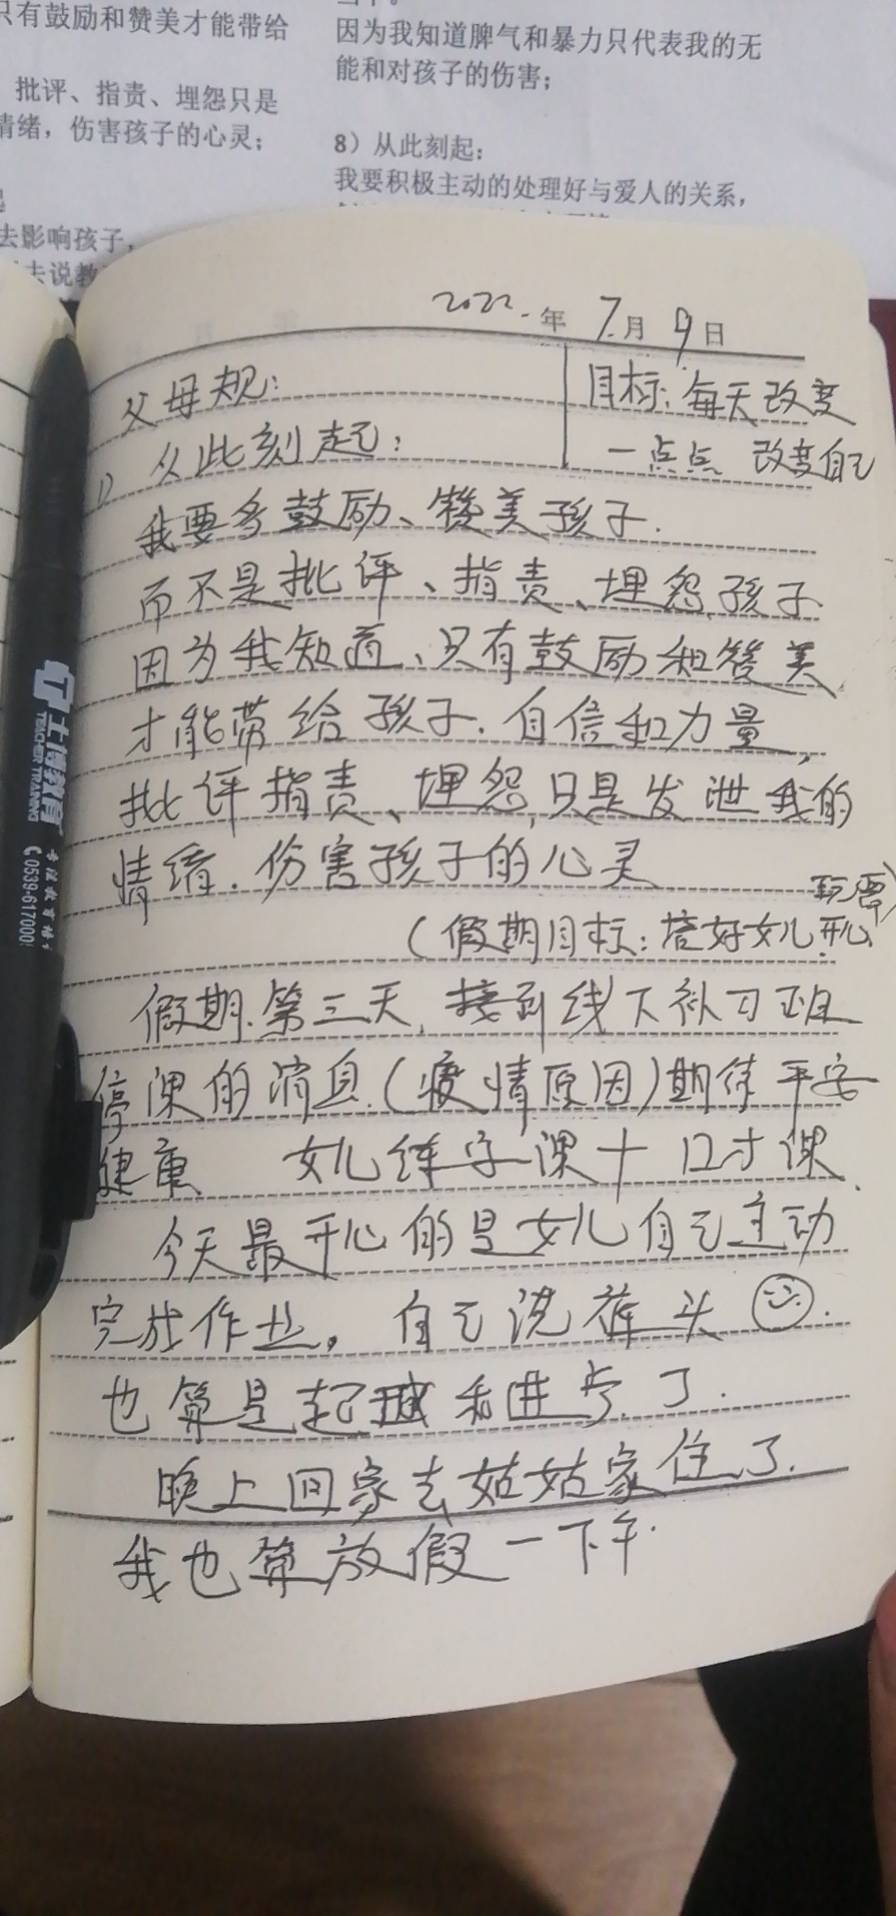 只有鼓励和赞美才能带给
批评、指责、埋怨只是
情绪，伤害孩子的心灵；
去影响孩子，
去说教
因为我知道脾气和暴力只代表我的无
能和对孩子的伤害；
8）从此刻起：
我要积极主动的处理好与爱人的关系，
2022.年 7月9日
父母规：
目标：每天改变
一点点 改变自己
1) 从此刻起：
我要多鼓励、赞美孩子.
而不是批评、指责、埋怨孩子
因为我知道、只有鼓励和赞美
才能带给孩子.自信和力量，
批评指责、埋怨，只是发泄我的
情绪.伤害孩子的心灵
(假期目标：陪好女儿开心
玩耍)
假期.第三天,接到线下补习班
停课的消息.(疫情原因)期待平安
健康 女儿练字课+口才课.
今天最开心的是女儿自己主动
完成作业，自己洗裤头.
也算是超越和进步了.
晚上回家去姑姑家住了.
我也算放假一下午.
土博教育
TEACHER TRAINING
0539-617000